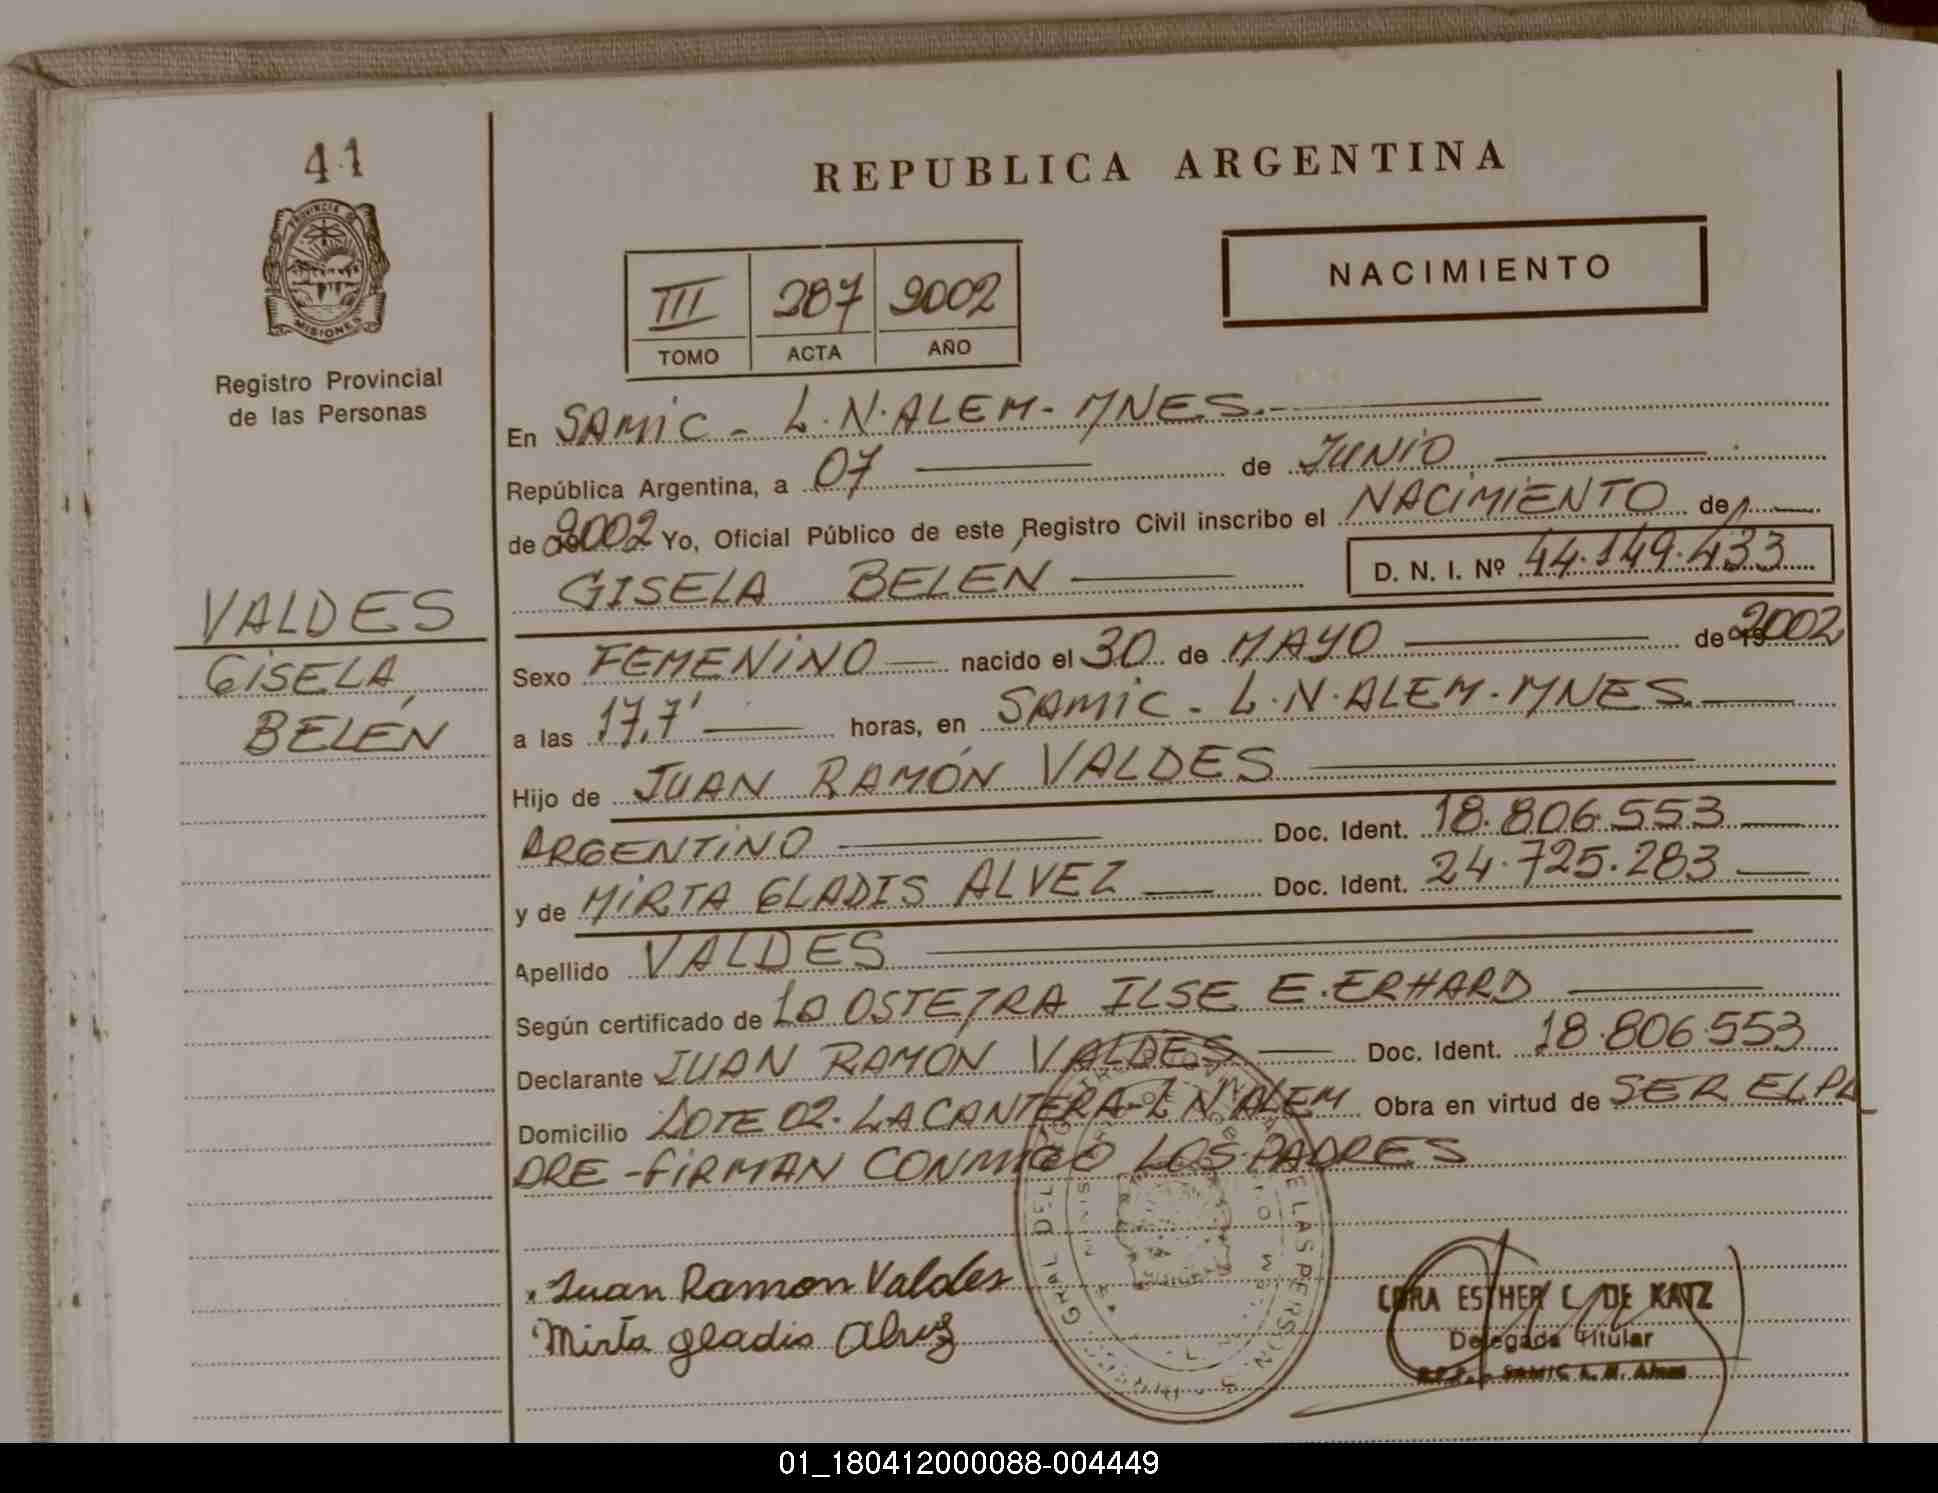 41
PROVINCIA DE
MISIONES
Registro Provincial
de las Personas
VALDES
GISELA,
BELÉN
REPUBLICA ARGENTINA
NACIMIENTO
III 287 2002
TOMO ACTA AÑO
En SAMIC - L.N.ALEM - MNES.
República Argentina, a 07 de JUNIO
de 2002 Yo, Oficial Público de este Registro Civil inscribo el NACIMIENTO de
GISELA BELÉN D. N. I. Nº 44.149.433
Sexo FEMENINO nacido el 30 de MAYO de 2002
a las 17,7' horas, en SAMIC - L.N.ALEM - MNES.
Hijo de JUAN RAMÓN VALDES
ARGENTINO Doc. Ident. 18.806.553
y de MIRTA GLADIS ALVEZ Doc. Ident. 24.725.283
Apellido VALDES
Según certificado de LA OSTETRA ILSE E. ERHARD
Declarante JUAN RAMÓN VALDES Doc. Ident. 18.806.553
Domicilio LOTE 02 - LA CANTERA - L N ALEM Obra en virtud de SER EL PA
DRE - FIRMAN CONMIGO LOS PADRES
Juan Ramon Valdes
Mirta gladis Alvez
CORA ESTHER C. DE KATZ
Delegada Titular
R.P.P. - SAMIC L. N. Alem
01_180412000088-004449